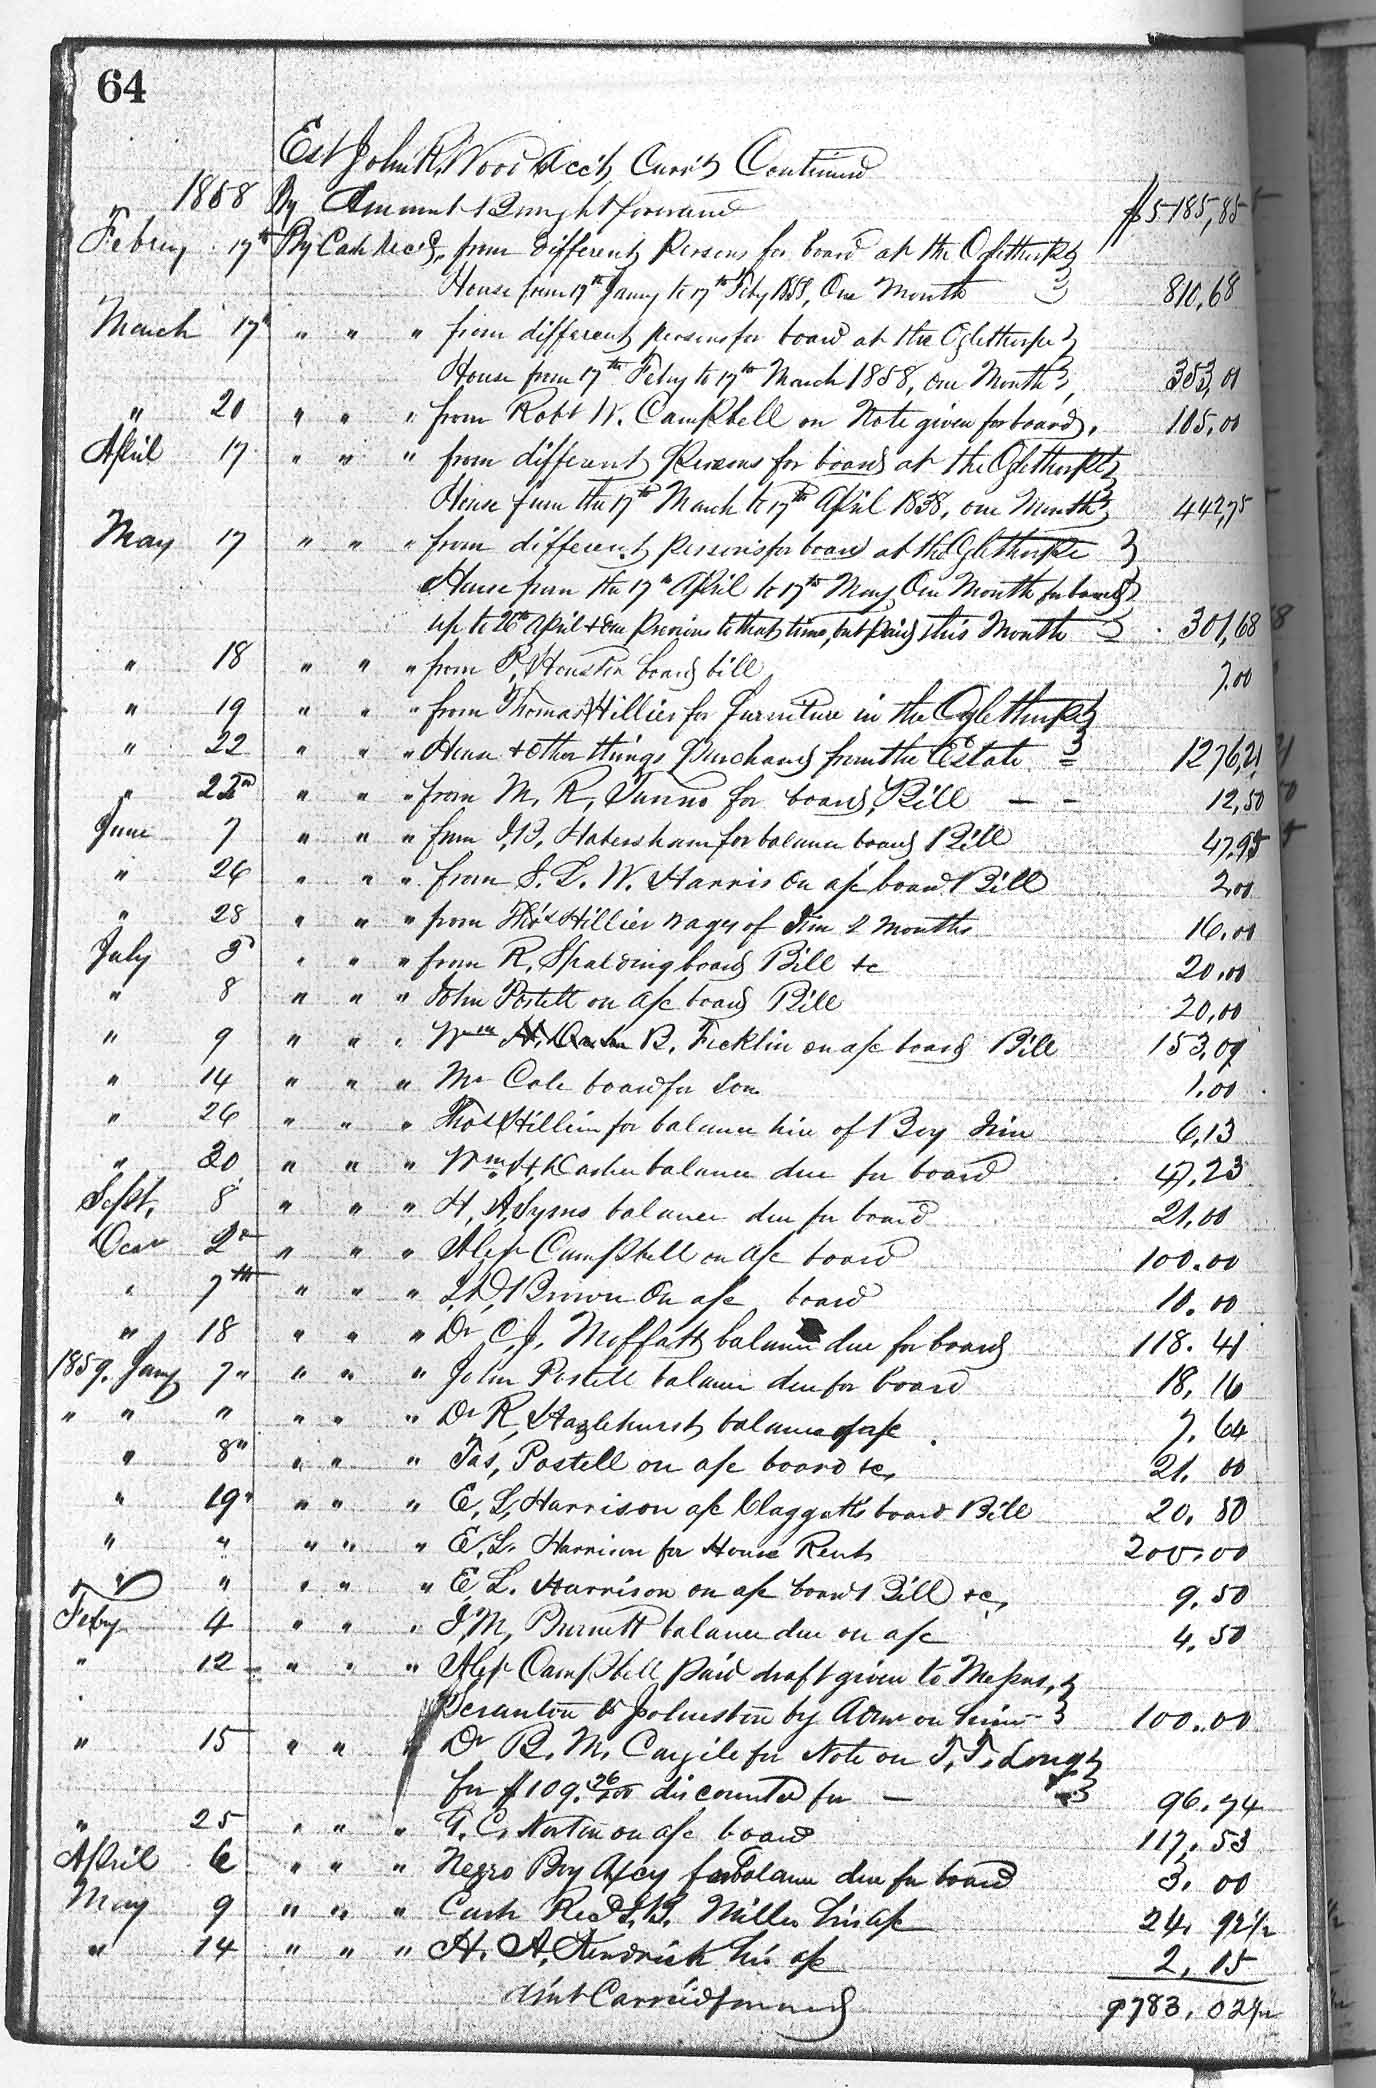 64
Est John R. Wood Acct, Curr't Continued
1858 By Amount Brought forward $5185,85
Februy 17th By Cash Recd, from different Persons for board at the Oglethorpe
House from 17th Jany to 17th Feby 1858, One Month 810,68
March 17th " " " from different persons for board at the Oglethorpe
House from 17th Feby to 17th March 1858, One Month, 353,00
" 20 " " " from Robt W. Campbell on Note given for board, 105,00
April 17 " " " from different Persons for board at the Oglethorpe
House from the 17th March to 17th April 1858, one Month 442,75
May 17 " " " from different persons for board at the Oglethorpe
House from the 17th April to 17th May, One Month for board
up to 26th April & due previous to that time, but paid this Month 301,68
" 18 " " " from P. Houston board bill 7.00
" 19 " " " from Thomas Hillier for furniture in the Oglethorpe
" 22 " " " House & other things purchased from the Estate 1276,21
" 22nd " " " from M. R. Tunno for board Bill — — 12,50
June 7 " " " from J. B. Habersham for balance board Bill 47,95
" 26 " " " from S. L. W. Harris on a/c board Bill 2,00
" 28 " " " from Thos Hillier wages of Jim 2 Months 16.00
July 5 " " " from R. Spalding board Bill &c 20.00
" 8 " " " John Postell on a/c board Bill 20,00
" 9 " " " Wm B. Ficklin on a/c board Bill 153,09
" 14 " " " Mr Cole board for Son 1.00
" 26 " " " Thos Hillier for balance hire of Boy Jim 6,13
" 30 " " " Wm H. Dasher balance due for board 47.23
Sept, 8 " " " H. A. Syms balance due for board 21.00
Octr 2d " " " Alexr Campbell on a/c board 100.00
" 7th " " " Brown On a/c board 10.00
" 18 " " " Dr C. J. Moffatt balance due for board 118.41
1859. Jany 7" " " " John Postell balance due for board 18,16
" " " " " " Dr R. Hazlehurst balance of a/c 7.64
" 8" " " " Jas, Postell on a/c board &c, 21.00
" 19" " " " E. L. Harrison a/c Claggett's board Bill 20.50
" " " " " E. L. Harrison for House Rent 200.00
" " " " " E. L. Harrison on a/c board Bill &c, 9.50
Feby 4 " " " J. M. Burnett balance due on a/c 4.50
" 12 " " " Alexr Campbell paid draft given to Messrs,
Scranton & Johnston by Admr on him 100.00
" 15 " " " Dr B. M. Cargile for Note on T. T. Long
for $109.26/100 discounted for — 96.74
" 25 " " " G. C. Norton on a/c board 117.53
April 6 " " " Negro Boy Alxcy for balance due for board 3.00
May 9 " " " Cash Recd J. B. Miller his a/c 24.92½
" 14 " " " H. A. Kendrick his a/c 2,15
Am't Carried forward 9783.02½